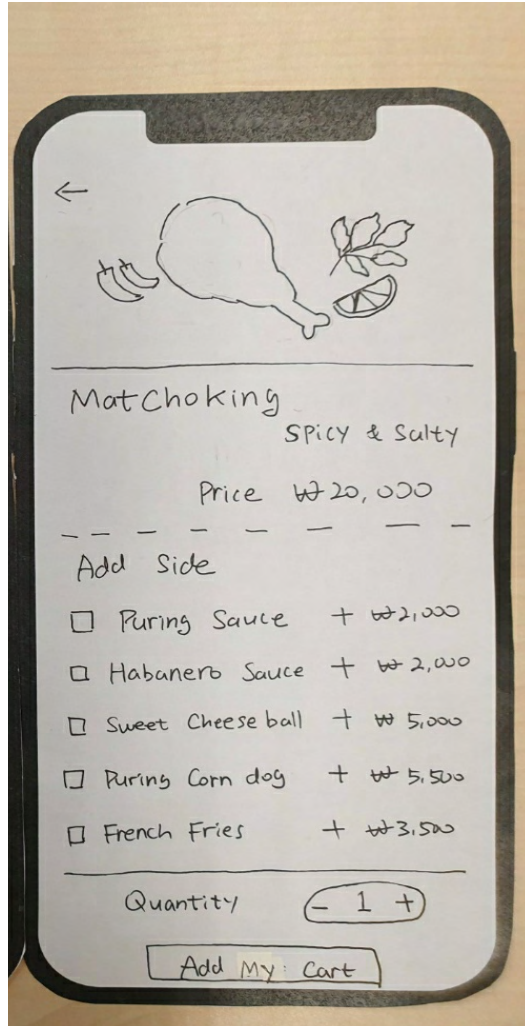 Matchoking
Spicy & Salty
Price ₩20,000
Add Side
Puring Sauce + ₩2,000
Habanero Sauce + ₩2,000
Sweet Cheese ball + ₩5,000
Puring Corn dog + ₩5,500
French Fries + ₩3,500
Quantity - 1 +
Add My Cart